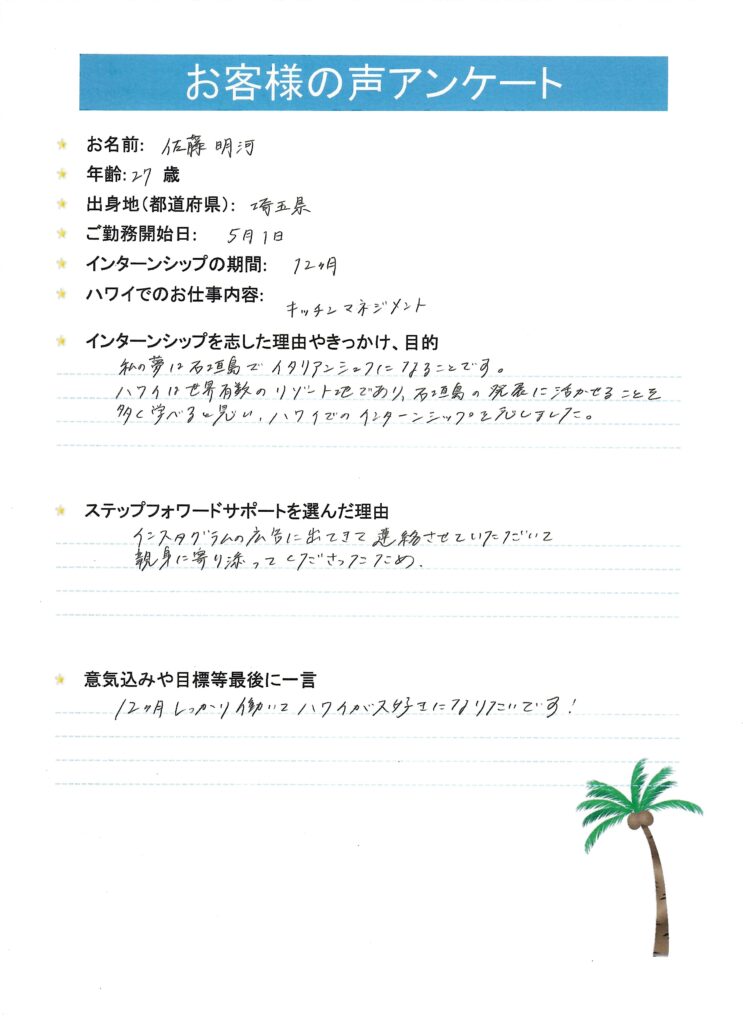 お客様の声アンケート
お名前: 佐藤 明河
年齢:27 歳
出身地(都道府県): 埼玉県
ご勤務開始日: 5月1日
インターンシップの期間: 12ヶ月
ハワイでのお仕事内容: キッチンマネジメント
インターンシップを志した理由やきっかけ、目的
私の夢は石垣島でイタリアンシェフになることです。
ハワイは世界有数のリゾート地であり、石垣島の発展に活かせることを
多く学べると思い、ハワイでのインターンシップを志しました。
ステップフォワードサポートを選んだ理由
インスタグラムの広告に出てきて連絡させていただいて
親身に寄り添ってくださったため.
意気込みや目標等最後に一言
12ヶ月しっかり働いてハワイが大好きになりたいです!